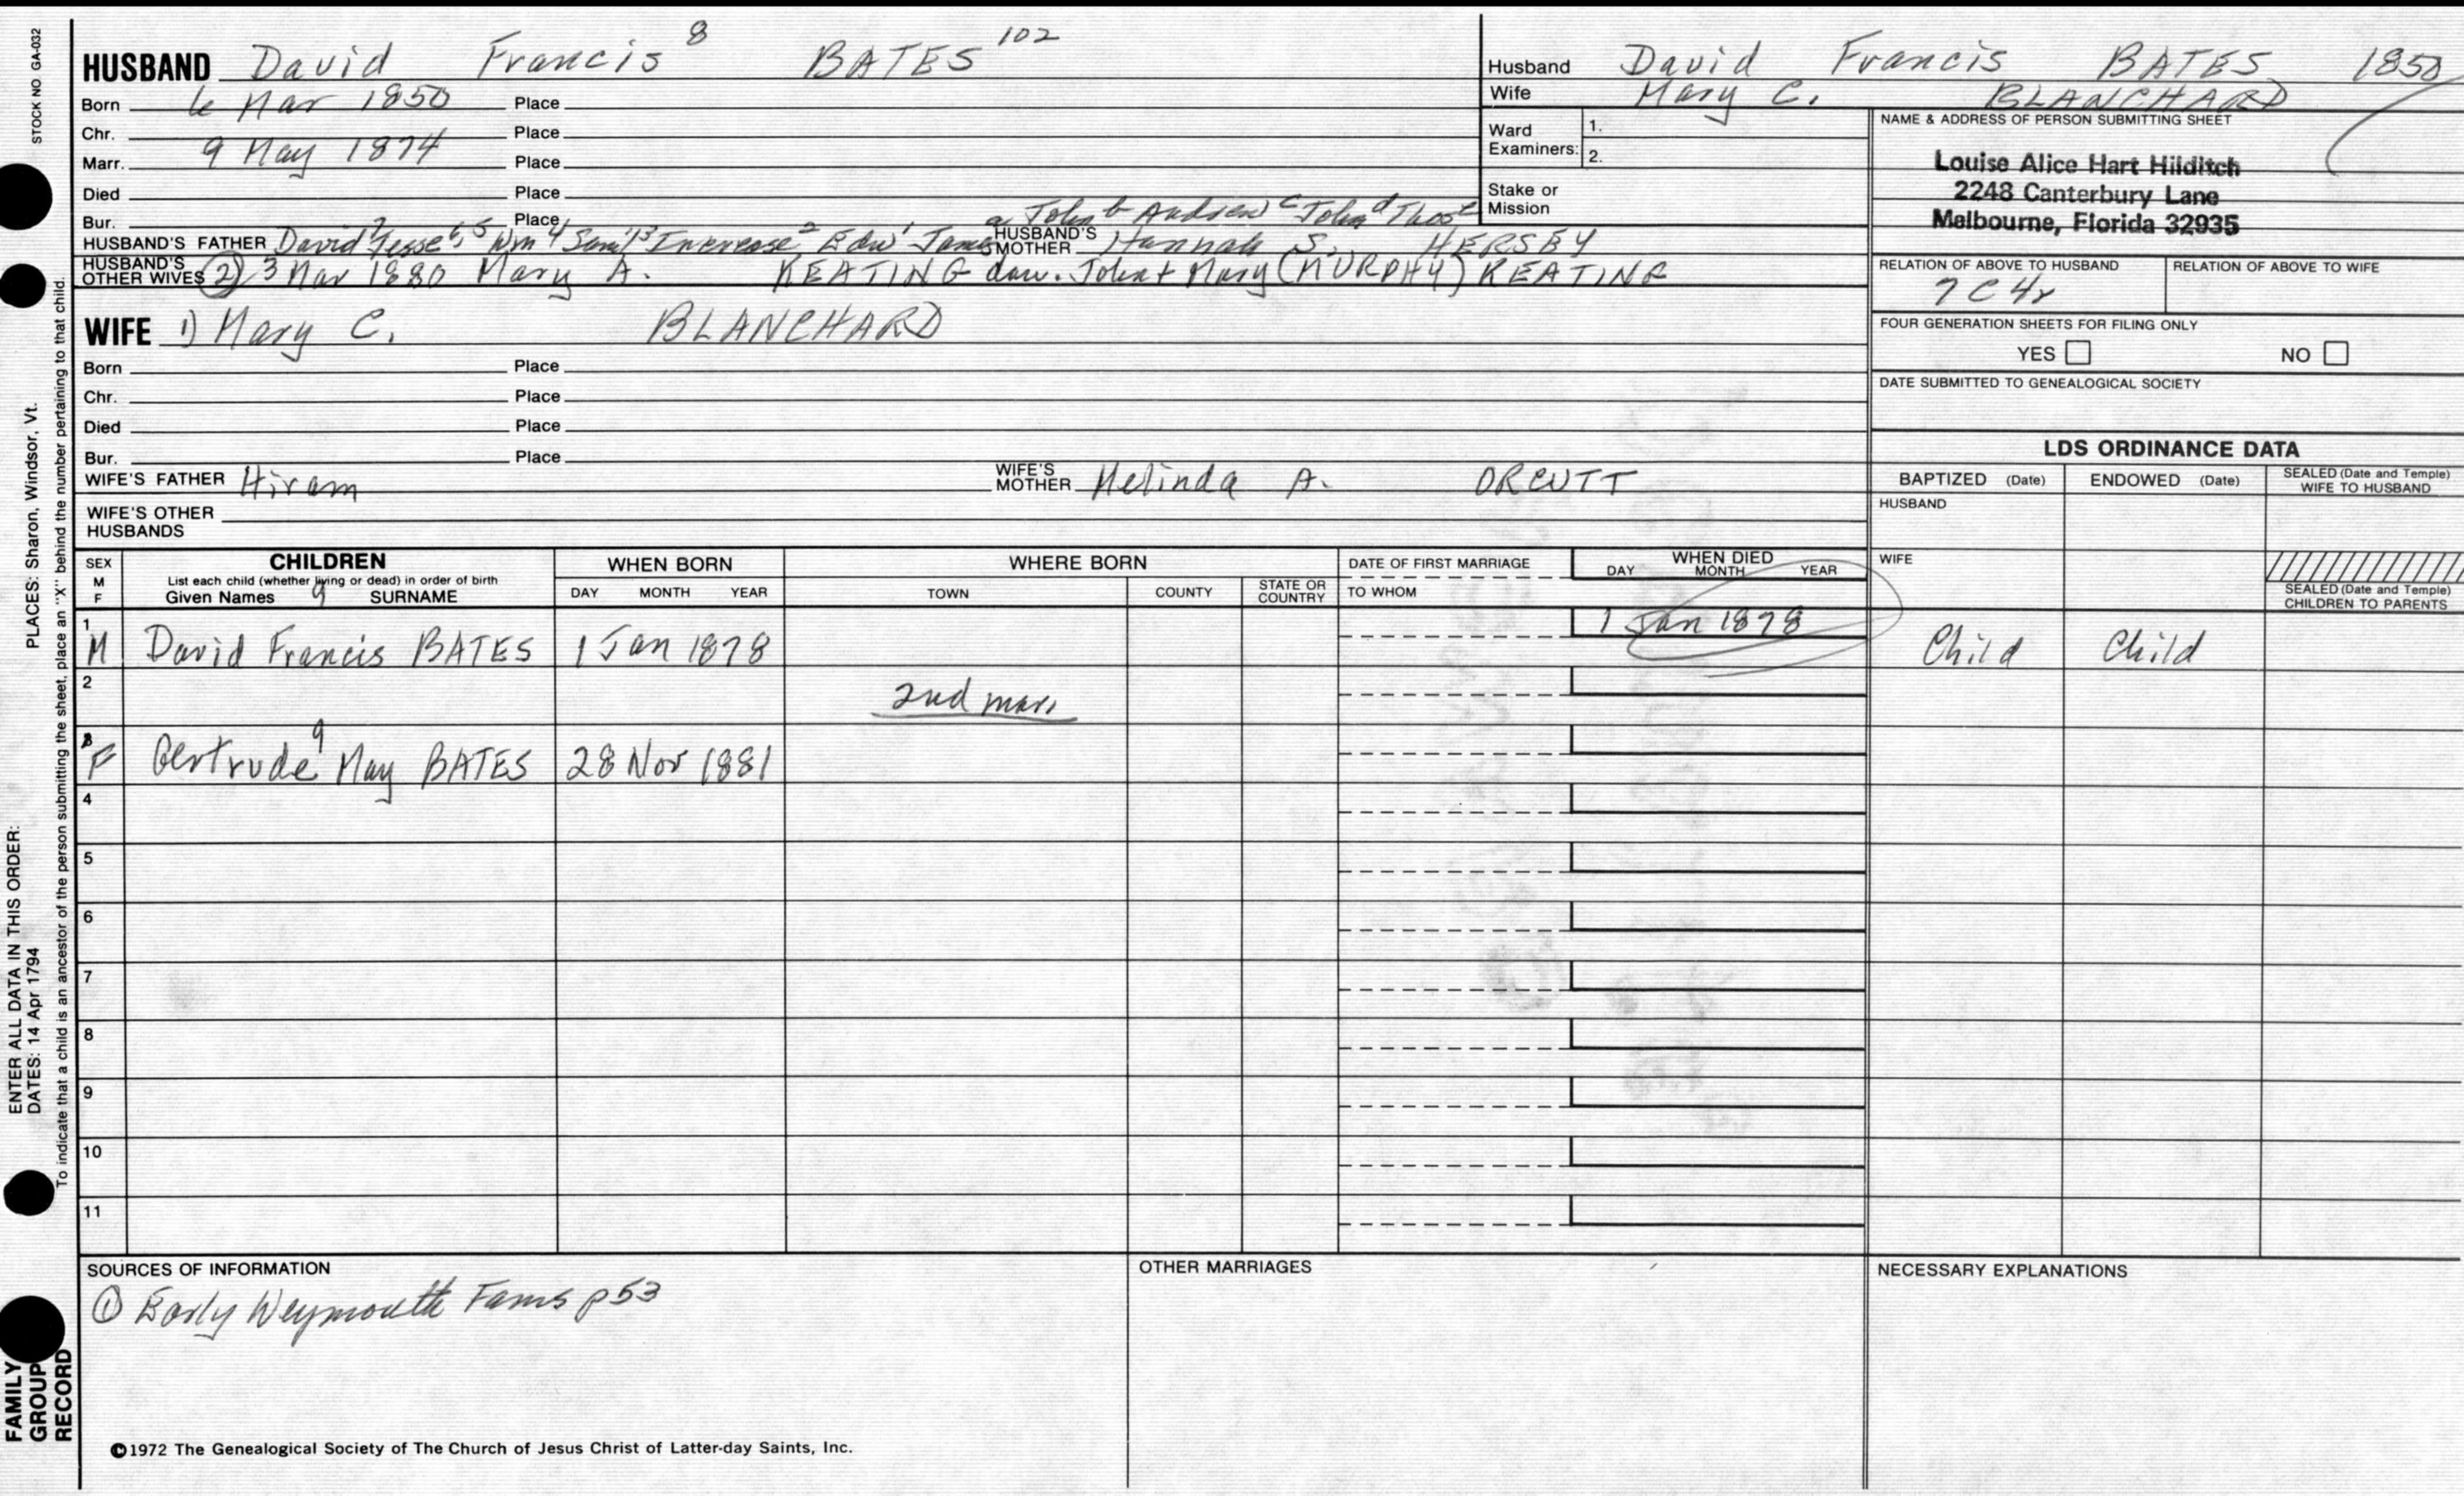 STOCK NO. GA-032
HUSBAND David Francis 8 BATES 102
Born 6 Mar 1850 Place
Chr. Place
Marr. 9 May 1874 Place
Died Place
Bur. Place
a John b Andrew c John d Thos e
HUSBAND'S FATHER David 7 Jesse 6, 5 Wm 4 Saml 3 Increase 2 Edw 1 James
HUSBAND'S MOTHER Hannah S. HERSEY
HUSBAND'S OTHER WIVES (2) 3 Mar 1880 Mary A. KEATING dau. John + Mary (MURPHY) KEATING
WIFE 1) Mary C. BLANCHARD
Born Place
Chr. Place
Died Place
Bur. Place
WIFE'S FATHER Hiram
WIFE'S MOTHER Melinda A. ORCUTT
WIFE'S OTHER HUSBANDS
Husband David Francis BATES 1850
Wife Mary C. BLANCHARD
Ward Examiners: 1.
2.
Stake or Mission
NAME & ADDRESS OF PERSON SUBMITTING SHEET
Louise Alice Hart Hilditch
2248 Canterbury Lane
Melbourne, Florida 32935
RELATION OF ABOVE TO HUSBAND RELATION OF ABOVE TO WIFE
7C4r
FOUR GENERATION SHEETS FOR FILING ONLY
YES NO
DATE SUBMITTED TO GENEALOGICAL SOCIETY
LDS ORDINANCE DATA
BAPTIZED (Date) ENDOWED (Date) SEALED (Date and Temple) WIFE TO HUSBAND
HUSBAND
WIFE
SEALED (Date and Temple) CHILDREN TO PARENTS
SEX M F
CHILDREN
List each child (whether living or dead) in order of birth
Given Names 9 SURNAME
WHEN BORN
DAY MONTH YEAR
WHERE BORN
TOWN COUNTY STATE OR COUNTRY
DATE OF FIRST MARRIAGE
TO WHOM
WHEN DIED
DAY MONTH YEAR
1 M David Francis BATES 1 Jan 1878 1 Jan 1878 Child Child
2 2nd marr
3 F Gertrude 9 May BATES 28 Nov 1881
4
5
6
7
8
9
10
11
SOURCES OF INFORMATION
① Early Weymouth Fams p53
OTHER MARRIAGES
NECESSARY EXPLANATIONS
©1972 The Genealogical Society of The Church of Jesus Christ of Latter-day Saints, Inc.
ENTER ALL DATA IN THIS ORDER:
DATES: 14 Apr 1794
PLACES: Sharon, Windsor, Vt.
To indicate that a child is an ancestor of the person submitting the sheet, place an "X" behind the number pertaining to that child.
FAMILY GROUP RECORD